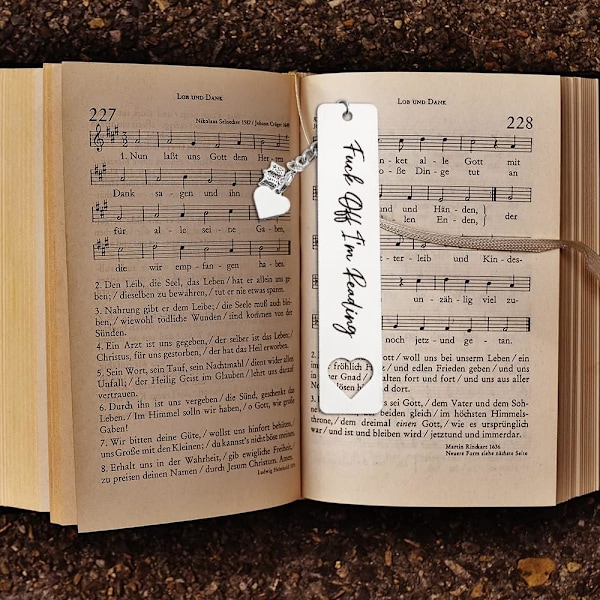 LOB UND DANK
227
Nikolaus Selnecker 1587 / Johann Crüger 1649
1. Nun laßt uns Gott dem Her-
Dank sa - gen und ihn
für al - le sei - ne Ga - ben,
die wir emp - fan - gen ha -
2. Den Leib, die Seel, das Leben / hat er allein uns
ben; / dieselben zu bewahren, / tut er nie etwas sparen.
3. Nahrung gibt er dem Leibe; / die Seele muß auch blei-
ben, / wiewohl tödliche Wunden / sind kommen von der
Sünden.
4. Ein Arzt ist uns gegeben, / der selber ist das Leben;
Christus, für uns gestorben, / der hat das Heil erworben.
5. Sein Wort, sein Tauf, sein Nachtmahl / dient wider allen
Unfall; / der Heilig Geist im Glauben / lehrt uns darauf
vertrauen.
6. Durch ihn ist uns vergeben / die Sünd, geschenkt das
Leben. / Im Himmel solln wir haben, / o Gott, wie große
Gaben!
7. Wir bitten deine Güte, / wollst uns hinfort behüten,
uns Große mit den Kleinen; / du kannst's nicht böse meinen.
8. Erhalt uns in der Wahrheit, / gib ewigliche Freiheit,
zu preisen deinen Namen / durch Jesum Christum. Amen.
Ludwig Helmbold
LOB UND DANK
228
ket al - le Gott mit
ße Din - ge tut an
und Hän - den, der
len En - den,
ter - leib und Kin - des-
un - zäh - lig viel zu-
noch jetz - und ge - tan.
Fuck Off I'm Reading
2. / woll uns bei unserem Leben / ein
fröhlich H / und edlen Frieden geben / und uns
er Gnad / alten fort und fort / und uns aus aller
lösen dort.
3. sei Gott, / dem Vater und dem Soh-
beiden gleich / im höchsten Himmels-
throne, / dem dreimal einen Gott, / wie es ursprünglich
war / und ist und bleiben wird / jetztund und immerdar.
Martin Rinckart 1636
Neuere Form siehe nächste Seite